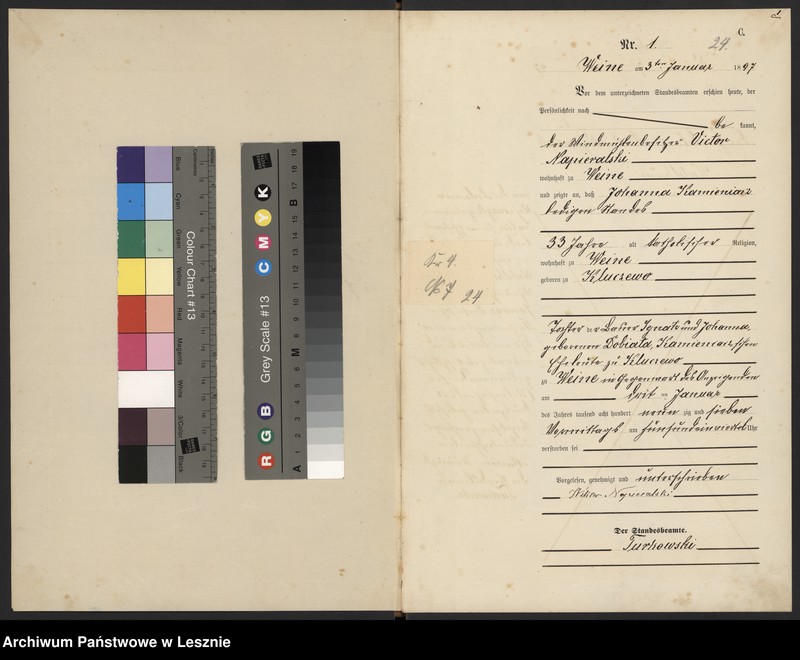 Blue
Cyan
Green
Yellow
Red
Magenta
White
3/Color
Black
Centimetres
Colour Chart #13
Grey Scale #13
R G B C M Y K
A 1 2 3 4 5 6 M 8 9 10 11 12 13 14 15 B 17 18 19
Nr. 4.
24
C.
Nr. 1.
24.
Weine am 3ten Januar 1897
Vor dem unterzeichneten Standesbeamten erschien heute, der
Persönlichkeit nach
be kannt,
der Windmühlenbesitzer Victor
Napieralski
wohnhaft zu Weine
und zeigte an, daß Johanna Kamieniarz
ledigen Standes
33 Jahre alt katholischer Religion,
wohnhaft zu Weine
geboren zu Kluczewo
Tochter der Bauer Ignatz und Johanna,
geborenen Dobiała, Kamieniarz'schen
Eheleute zu Kluczewo
zu Weine in Gegenwart des Anzeigenden
am drit ten Januar
des Jahres tausend acht hundert neun zig und sieben
Vormittags um fünf und ein viertel Uhr
verstorben sei
Vorgelesen, genehmigt und unterschrieben
Victor Napieralski
Der Standesbeamte.
Turkowski
Archiwum Państwowe w Lesznie